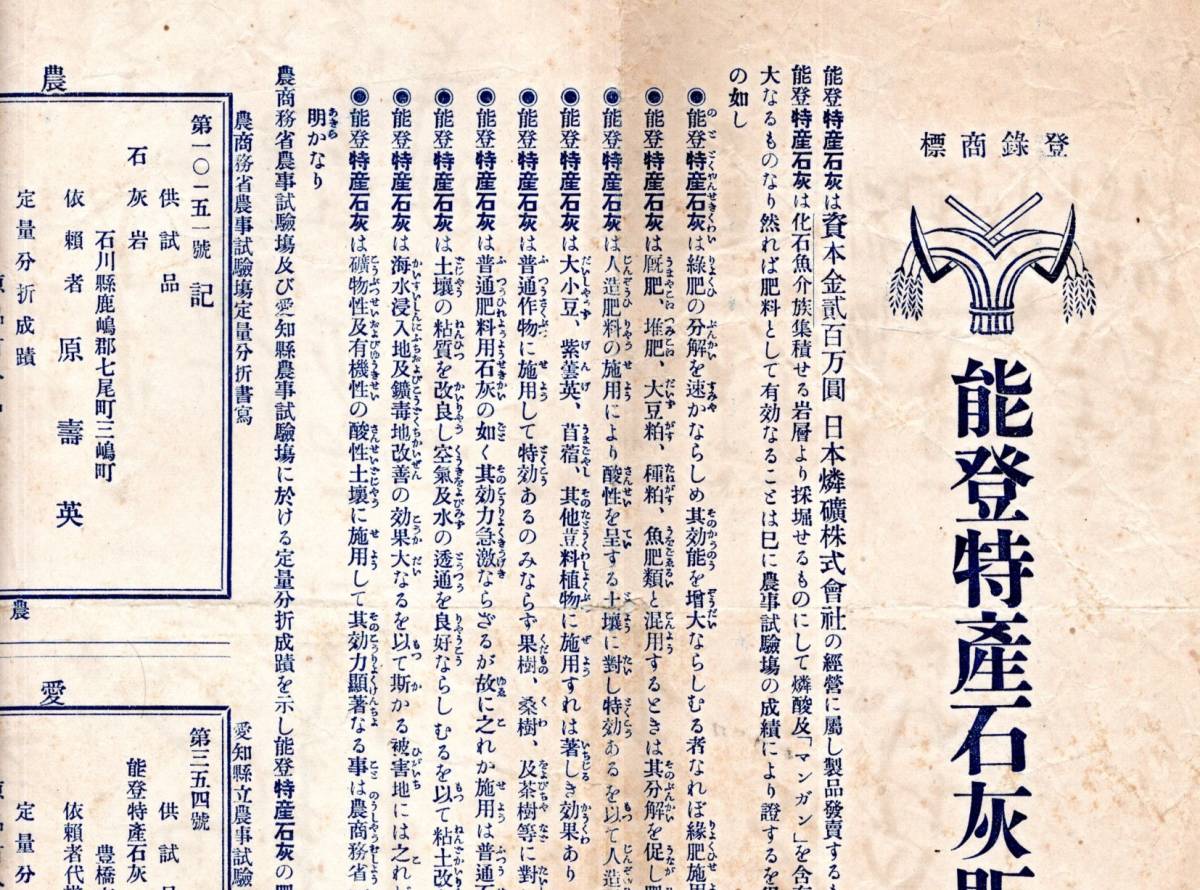 登錄商標
能登特產石灰
能登特産石灰は資本金貳百万圓 日本燐礦株式會社の經營に屬し製品發賣する
能登特産石灰は化石魚介族集積せる岩層より採堀せるものにして燐酸及「マンガン」を含
大なるものなり然れば肥料として有効なることは已に農事試驗塲の成績により證するを
の如し
◉能登特産石灰は綠肥の分解を速かならしめ其効能を增大ならしむる者なれば綠肥施用
◉能登特産石灰は厩肥、堆肥、大豆粕、種粕、魚肥類と混用するときは其分解を促し
◉能登特産石灰は人造肥料の施用により酸性を呈する土壤に對し特効あるを以て人造
◉能登特産石灰は大小豆、紫雲英、苜蓿、其他荳科植物に施用すれは著しき効果あり
◉能登特産石灰は普通作物に施用して特効あるのみならず果樹、桑樹、及茶樹等に對
◉能登特産石灰は普通肥料用石灰の如く其効力急激ならざるが故に之れか施用は普通
◉能登特産石灰は土壤の粘質を改良し空氣及水の透通を良好ならしむるを以て粘土
◉能登特産石灰は海水浸入地及鑛毒地改善の効果大なるを以て斯かる被害地には之れ
◉能登特産石灰は礦物性及有機性の酸性土壤に施用して其効力顯著なる事は農商務省
明かなり
農商務省農事試驗塲及び愛知縣農事試驗塲に於ける定量分折成蹟を示し能登特産石灰の
農商務省農事試驗塲定量分折書寫
農
第一〇一五一號 記
供試品
石灰岩
石川縣鹿嶋郡七尾町三嶋町
依賴者 原 壽英
定量分折成蹟
農
愛知縣立農事試驗
愛
第三五四號
供試
能登特產石灰
豊橋
依賴者代
定量分